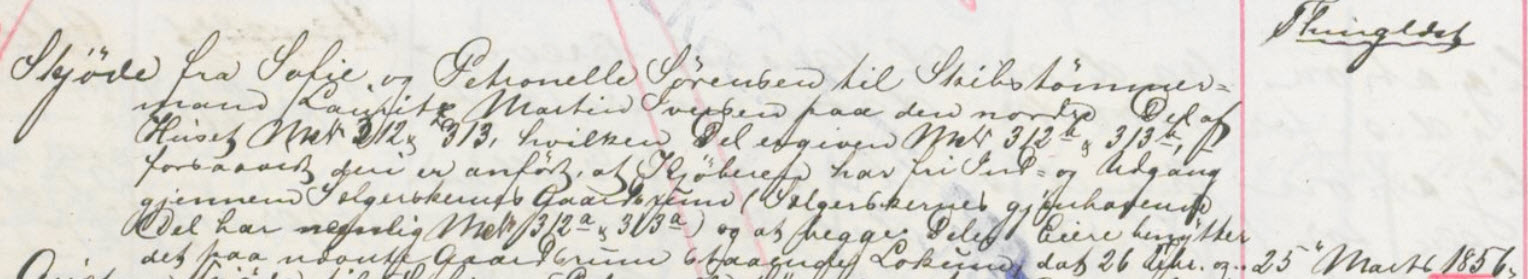 Thinglæst
Skjöde fra Sofie og Petronelle Sørensen til Skibstömmer=
mand Lauritz Martin Iversen paa den nordre Del af
Huset Mtr 312 & 313, hvilken Del er given Mtr 312b & 313b,
forsaavidt deri er anført, at Kjöberen har fri Ind- og Udgang
gjennem Selgerskernes Gaardsrum (Selgerskernes gjenhavende
Del har nemlig Mtr 312a & 313a) og at begge Deles Eiere benytter
det paa nævnte Gaardsrum staaende Lokum, dat 26 Febr. og 25 Marts 1856.